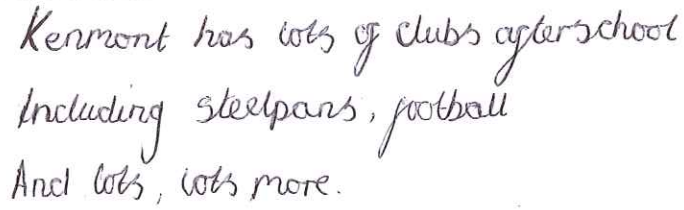 Kenmont has lots of clubs afterschool
Including steelpans, football
And lots, lots more.